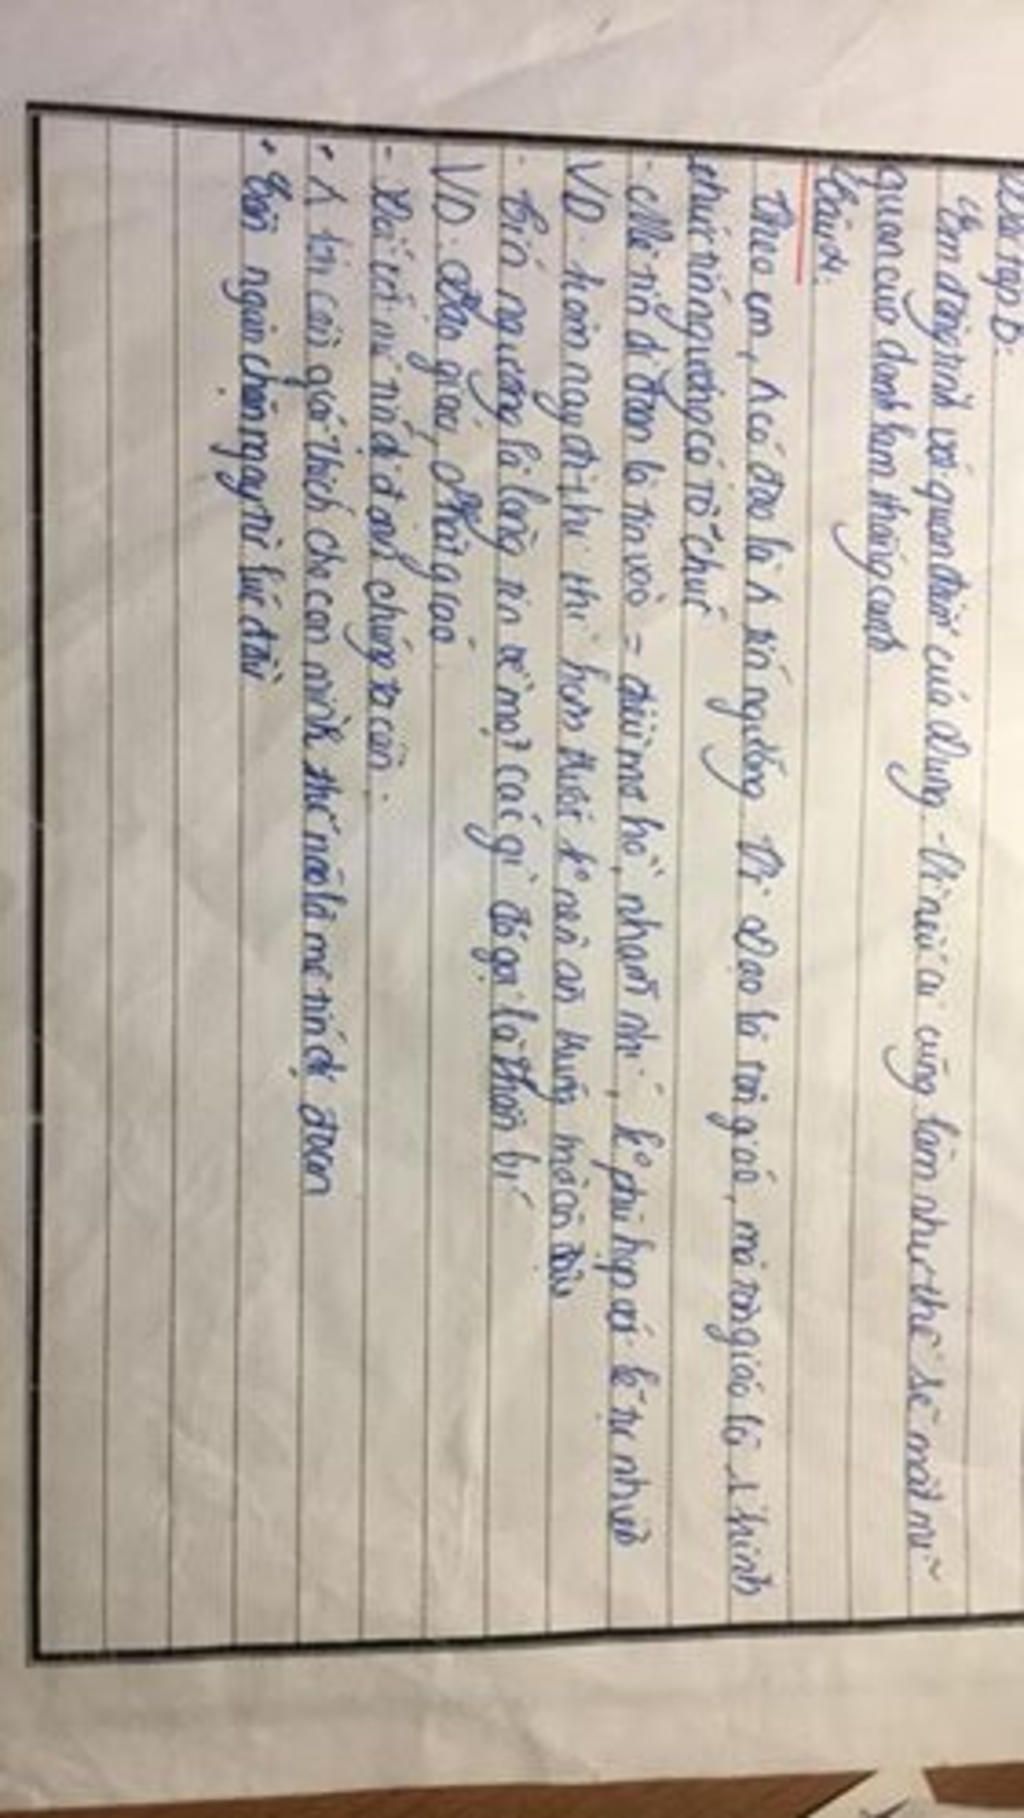 Bài tập b:
Em đồng tình với quan điểm của Dung. Vì nếu ai cũng làm như thế sẽ mất mĩ
quan của danh lam thắng cảnh
Câu 4:
Theo em, k có đạo là k tín ngưỡng. Vì Đạo là tôn giáo, mà tôn giáo là 1 hình
thức tín ngưỡng có tổ chức
- Mê tín dị đoan là tin vào = điều mơ hồ, nhảm nhí, k° phù hợp với lẽ tự nhiên
VD: hôm nay đi thi thì hôm trước k° nên ăn trứng mà ăn đậu
- Tín ngưỡng là lòng tin về một cái gì đó gọi là thần bí
VD: Đạo giáo, Phật giáo.
- Để trừ mê tín dị đoan chúng ta cần:
• giải thích cho con mình thế nào là mê tín dị đoan
• Cần ngăn chặn ngay từ lúc đầu